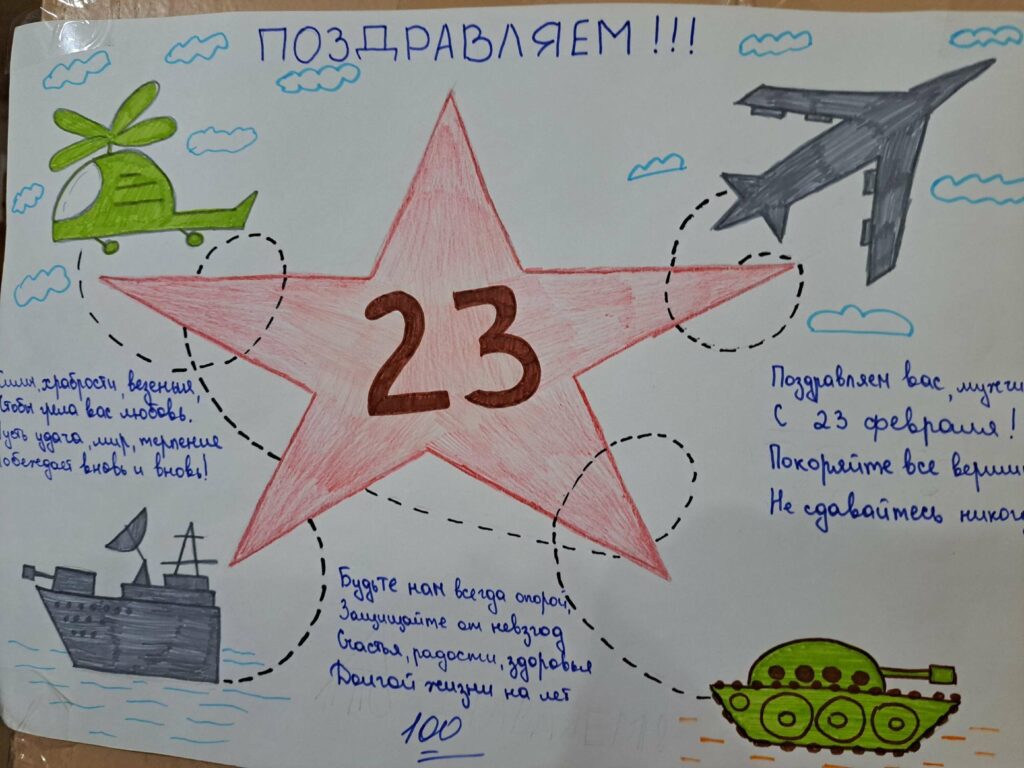 ПОЗДРАВЛЯЕМ!!!
23
Силы, храбрости, везенья,
Чтобы грела вас любовь.
Пусть удача, мир, терпение
Побеждает вновь и вновь!
Поздравляем вас, мужчи
С 23 февраля!
Покоряйте все верши
Не сдавайтесь никог
Будьте нам всегда опорой,
Защищайте от невзгод
Счастья, радости, здоровья
Долгой жизни на лет
100